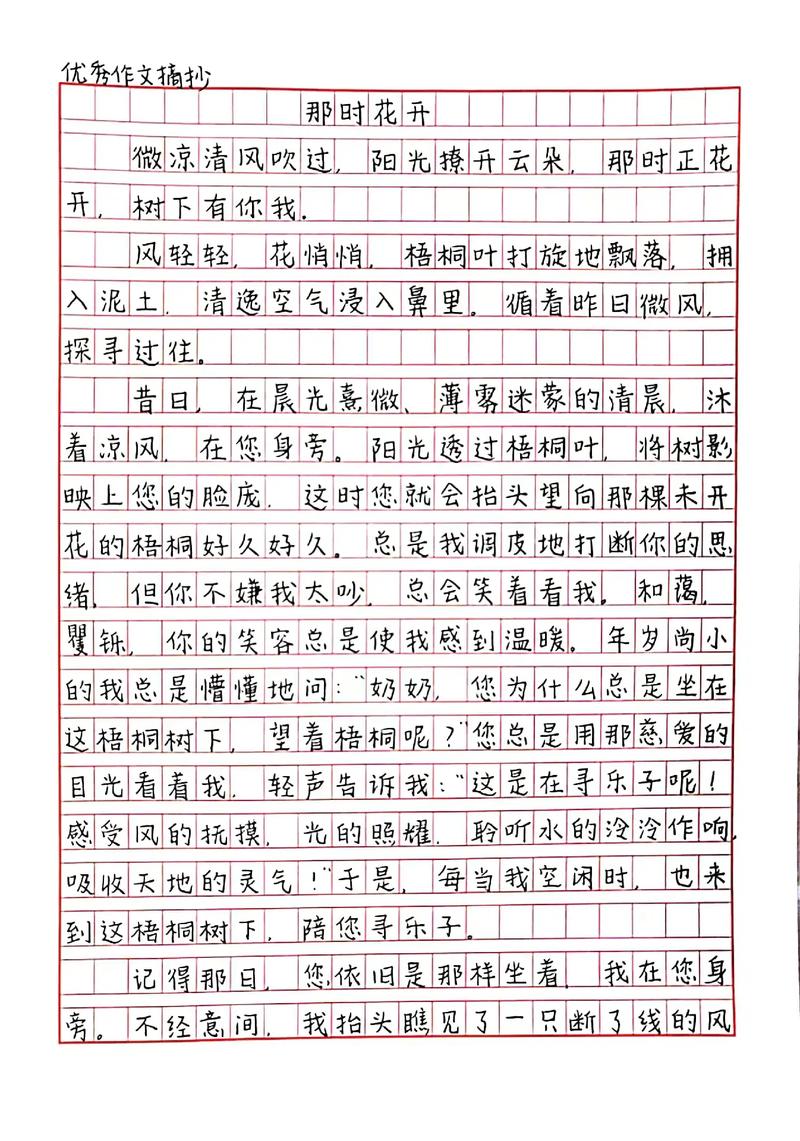 优秀作文摘抄
那时花开
微凉清风吹过，阳光撩开云朵，那时正花
开，树下有你我．
风轻轻，花悄悄，梧桐叶打旋地飘落，拥
入泥土，清逸空气浸入鼻里。循着昨日微风，
探寻过往。
昔日，在晨光熹微、薄雾迷蒙的清晨，沐
着凉风，在您身旁。阳光透过梧桐叶，将树影
映上您的脸庞，这时您就会抬头望向那棵未开
花的梧桐好久好久。总是我调皮地打断你的思
绪，但你不嫌我太吵，总会笑着看我。和蔼，
矍铄，你的笑容总是使我感到温暖。年岁尚小
的我总是懵懂地问：“奶奶，您为什么总是坐在
这梧桐树下，望着梧桐呢？”您总是用那慈爱的
目光看着我，轻声告诉我：“这是在寻乐子呢！
感受风的抚摸，光的照耀，聆听水的泠泠作响，
吸收天地的灵气！”于是，每当我空闲时，也来
到这梧桐树下，陪您寻乐子。
记得那日，您依旧是那样坐着，我在您身
旁。不经意间，我抬头瞧见了一只断了线的风